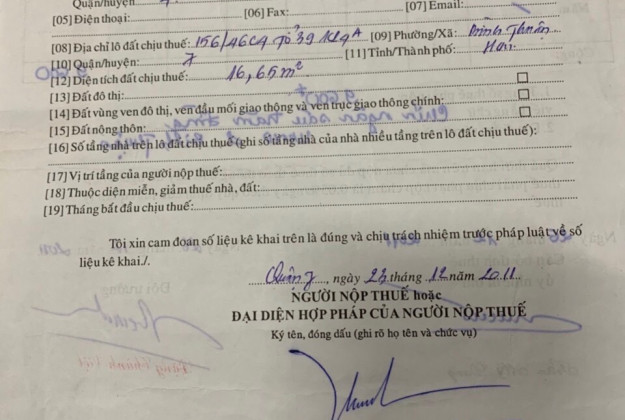 Quận/huyện
[05] Điện thoại: [06] Fax: [07] Email:
[08] Địa chỉ lô đất chịu thuế: 156/46C9 Tổ 39 [09] Phường/Xã: Bình Thuận
[10] Quận/huyện: 7 [11] Tỉnh/Thành phố: Hcm
[12] Diện tích đất chịu thuế: 16,65m²
[13] Đất đô thị:
[14] Đất vùng ven đô thị, ven đầu mối giao thông và ven trục giao thông chính:
[15] Đất nông thôn:
[16] Số tầng nhà trên lô đất chịu thuế (ghi số tầng nhà của nhà nhiều tầng trên lô đất chịu thuế):
[17] Vị trí tầng của người nộp thuế:
[18] Thuộc diện miễn, giảm thuế nhà, đất:
[19] Tháng bắt đầu chịu thuế:
Tôi xin cam đoan số liệu kê khai trên là đúng và chịu trách nhiệm trước pháp luật về số
liệu kê khai./.
Quận 7, ngày 23 tháng 12 năm 2011
NGƯỜI NỘP THUẾ hoặc
ĐẠI DIỆN HỢP PHÁP CỦA NGƯỜI NỘP THUẾ
Ký tên, đóng dấu (ghi rõ họ tên và chức vụ)